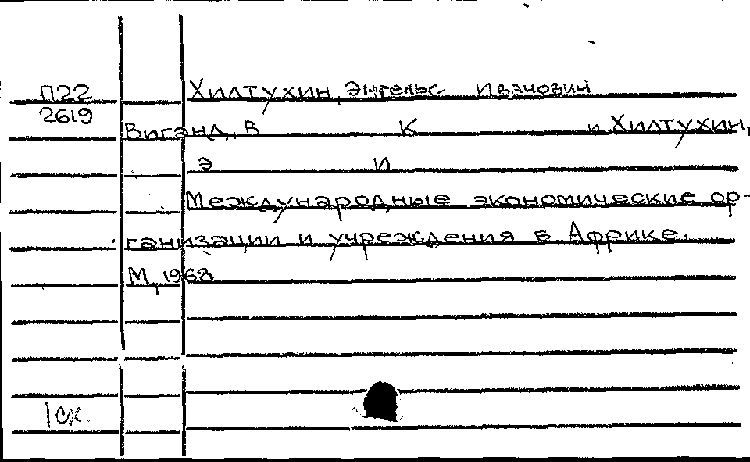 П22 Хилтухин, Энгельс Иванович
2619
Виганд, В К и Хилтухин,
Э И
Международные экономические ор-
ганизации и учреждения в Африке.
М, 1968
1 ск.